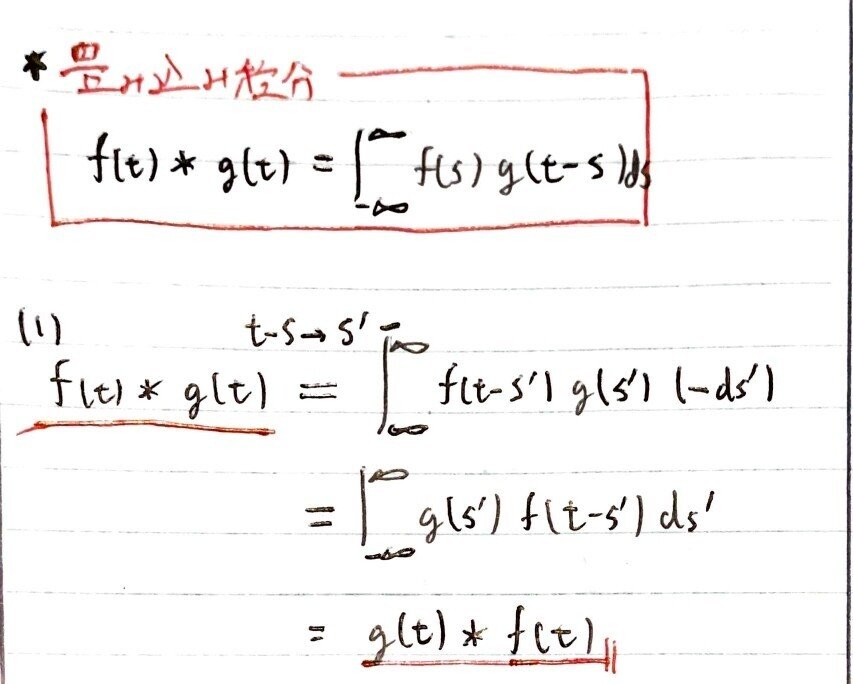 * 畳み込み積分
f(t) * g(t) = ∫_{-∞}^{∞} f(s) g(t-s) ds
(1) t-s → s'
f(t) * g(t) = ∫_{∞}^{-∞} f(t-s') g(s') (-ds')
= ∫_{-∞}^{∞} g(s') f(t-s') ds'
= g(t) * f(t)